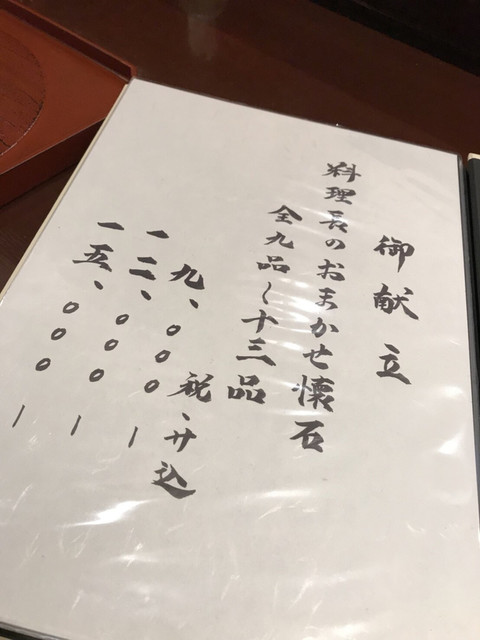 御献立
料理長のおまかせ懐石
全九品〜十三品
税、サ込
九、〇〇〇ー
一二、〇〇〇ー
一五、〇〇〇ー